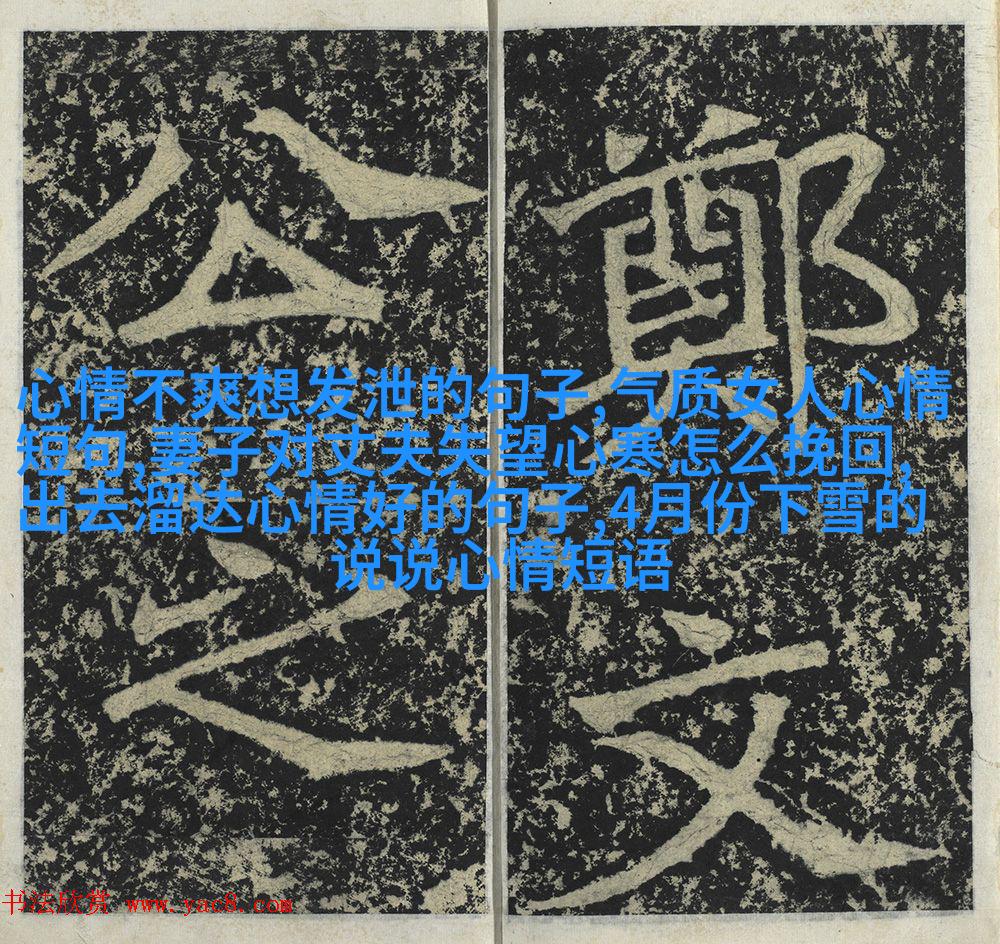 鄭文
公之
心情不爽想发泄的句子,气质女人心情
短句,妻子对丈夫失望心寒怎么挽回,
出去溜达心情好的句子,4月份下雪的
说说心情短语
书法欣赏 www.yac8.com